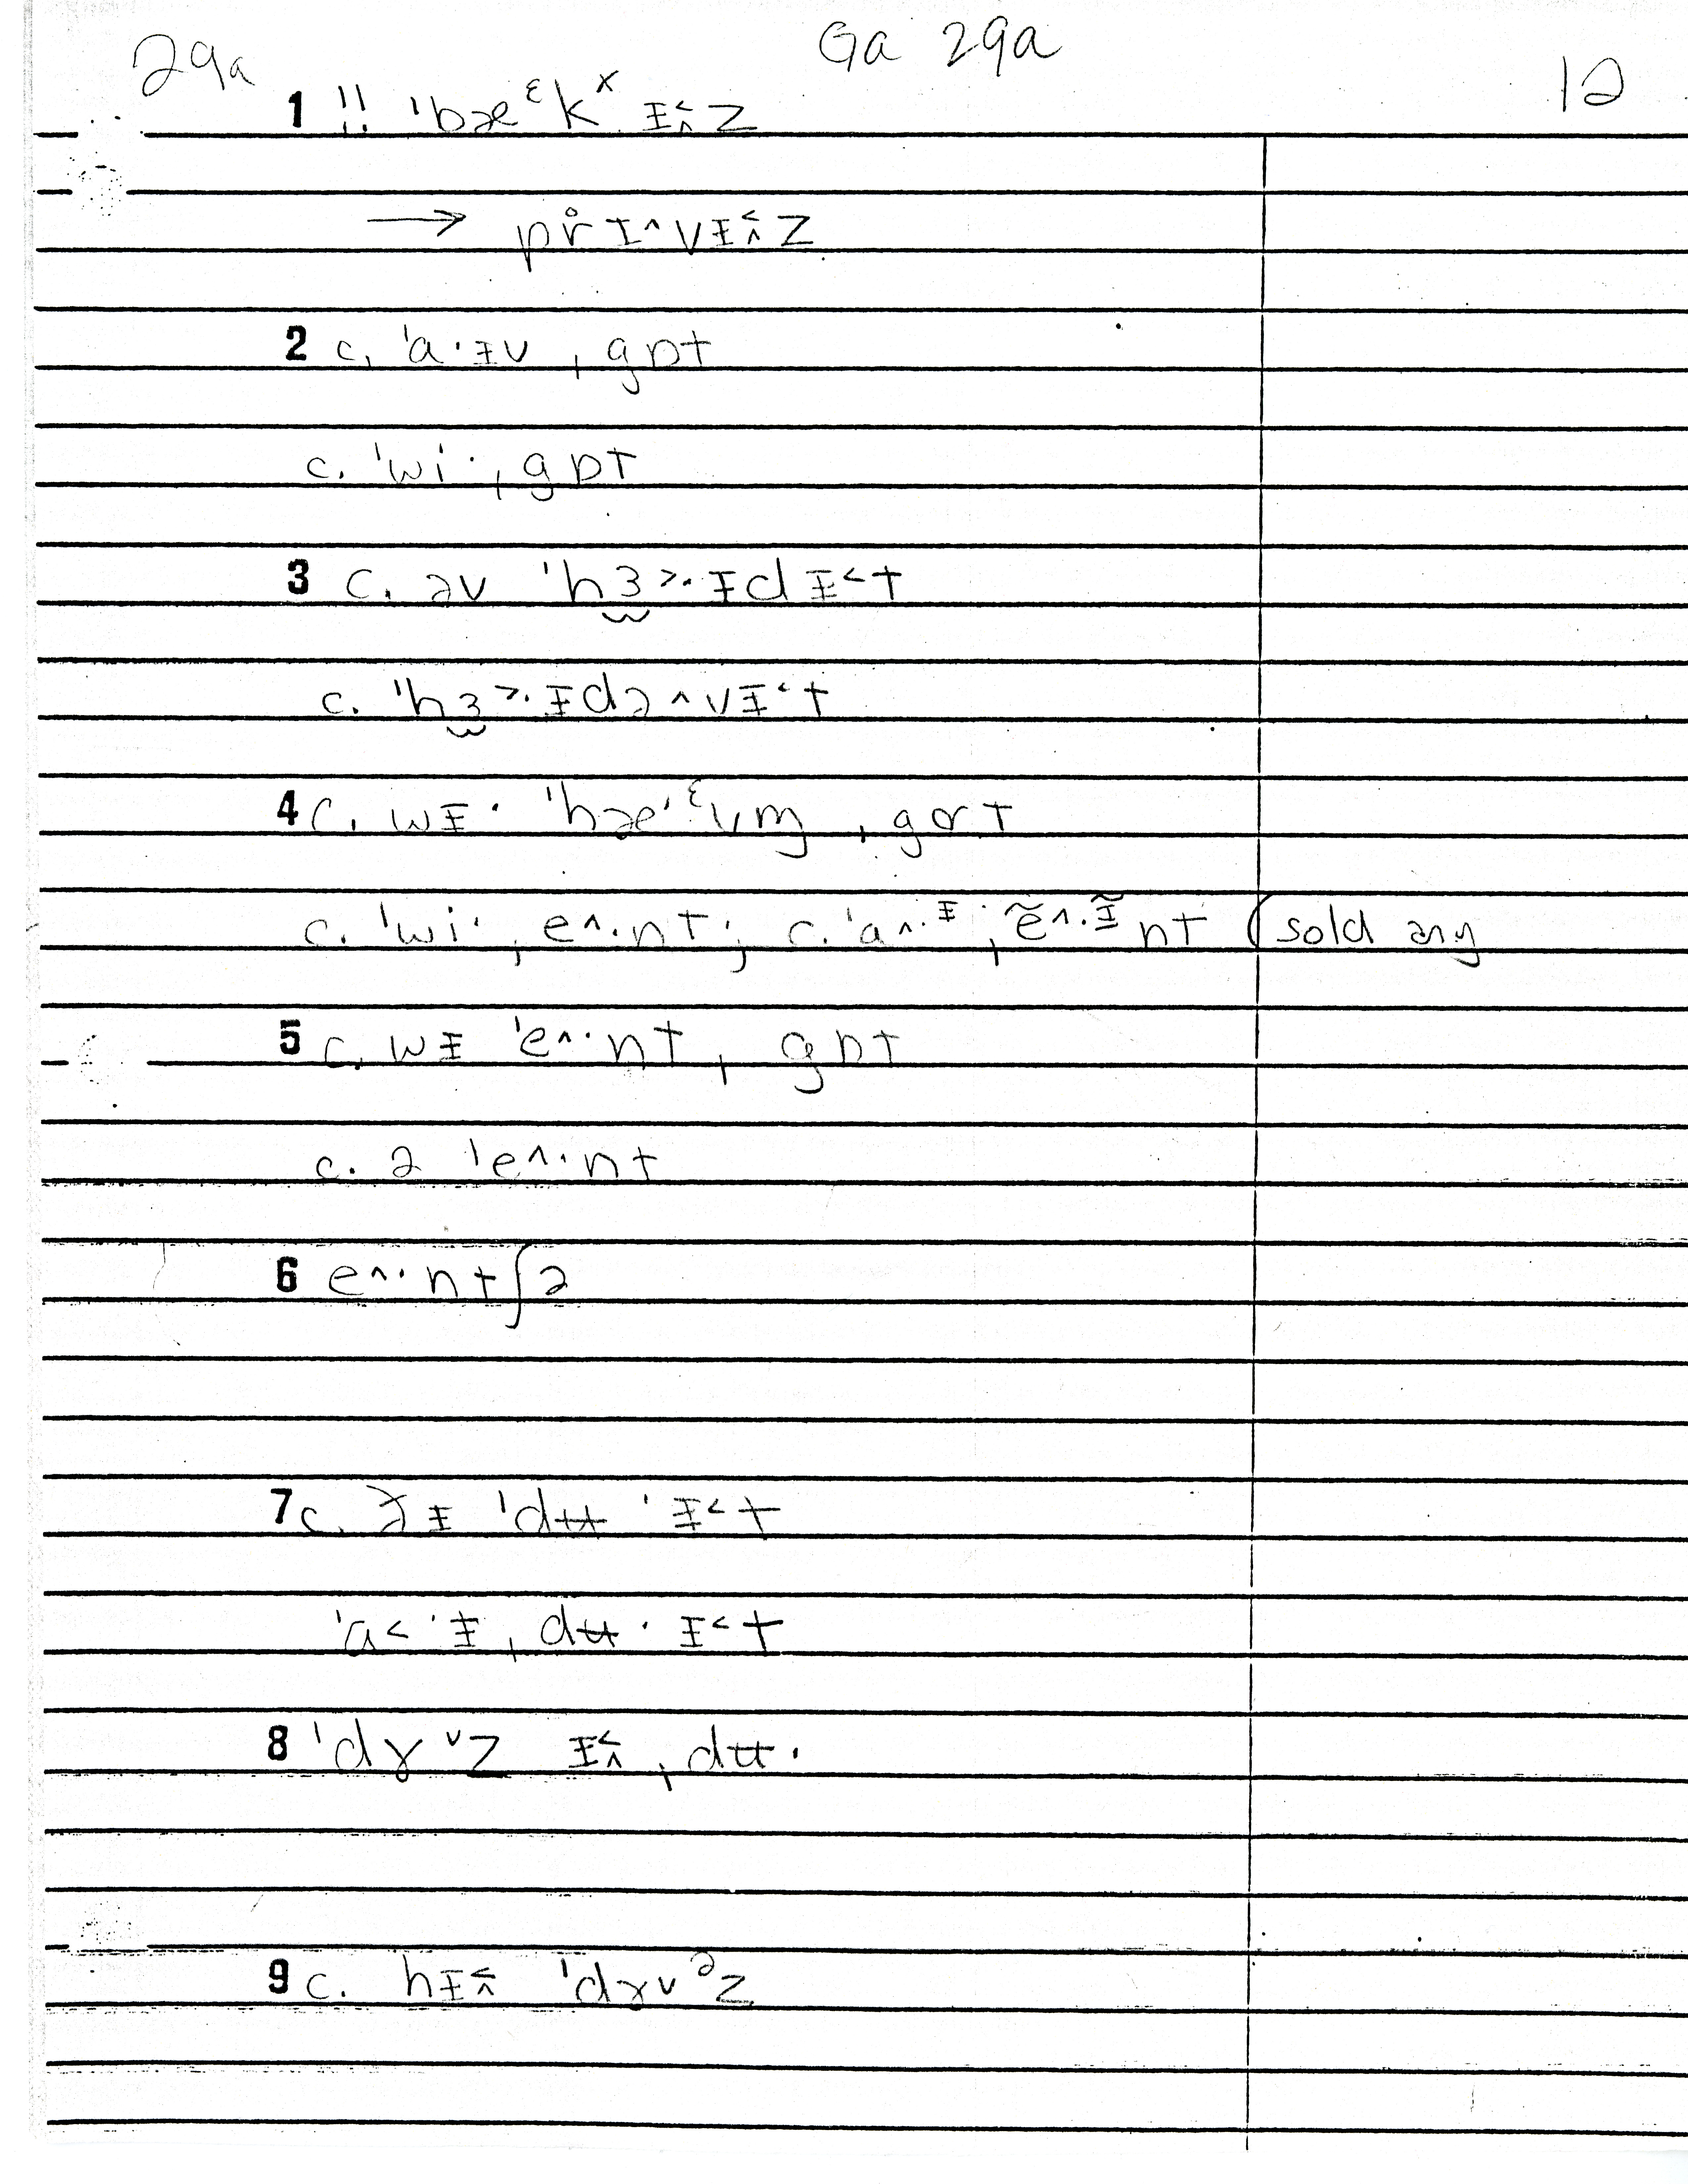 Ga 29a
29a
12
1 !! ˈbæᵋkˣ ɪ̵˂˄z
→ pr̊ɪ˄vɪ̵˂˄z
2 c. ˈa·ɪ̵v ˌgɒt
c. ˈwi· ˌgɒt
3 c. əv ˈhɜ˃·ɪ̵dɪ̵˂t
c. ˈhɜ˃·ɪ̵də˄vɪ̵˂t
4 c. wɪ̵· ˈhæ·ᵋvm̩ ˌgɑt
c. ˈwi· ˌe˄·nt; c. ˈa˄·ɪ̵ ˌẽ˄·ɪ̵̃nt (sold any
5 c. wɪ̵ ˈe˄·nt ˌgɒt
c. ə ˈe˄·nt
6 e˄·ntʃə
7 c. ðɪ̵ ˈdʉ·ɪ̵˂t
ˈa˂·ɪ̵ ˌdʉ·ɪ̵˂t
8 ˈdɤ˅z ɪ̵˂˄ ˌdʉ·
9 c. hɪ̵˂˄ ˈdɤ˅ᵊz